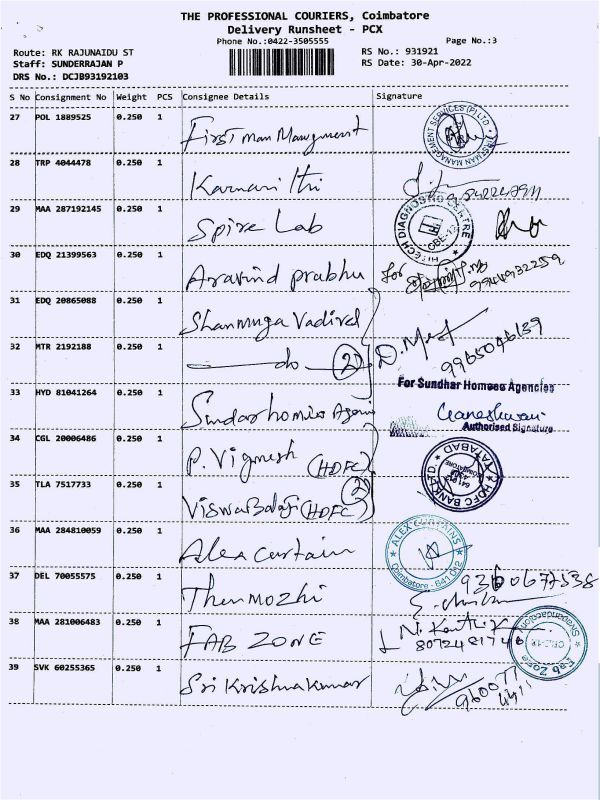 THE PROFESSIONAL COURIERS, Coimbatore
Delivery Runsheet - PCX
Phone No.:0422-3505555
Page No.:3
Route: RK RAJUNAIDU ST
RS No.: 931921
Staff: SUNDERRAJAN P
RS Date: 30-Apr-2022
DRS No.: DCJB93192103
S No Consignment No Weight PCS Consignee Details Signature
27 POL 1889525 0.250 1 First man Management
MANAGEMENT SERVICES (P) LTD. FIRSTMAN
28 TRP 4044478 0.250 1 Karnani Ithi
29 MAA 287192145 0.250 1 Spire Lab
HITECH DIAGNOSTIC CENTRE CBE-12
30 EDQ 21399563 0.250 1 Aravind prabhu for 9344932259
31 EDQ 20865088 0.250 1 Shanmuga Vadivel
32 MTR 2192188 0.250 1 do 2 9965046139
For Sundhar Homoeo Agencies
33 HYD 81041264 0.250 1 Sundarhomieo
Authorised Signature
34 CGL 20006486 0.250 1 P. Vignesh (HDFC)
HDFC BANK LTD TATABAD
35 TLA 7517733 0.250 1 ViswaBalaji (HDFC) 2
36 MAA 284810059 0.250 1 Alex curtain
ALEX CURTAINS Coimbatore - 641 012
37 DEL 70055575 0.250 1 Thenmozhi 9360677538
38 MAA 281006483 0.250 1 FAB ZONE N. Karthik 8072481746
Fab Zone Sivanandacolony
39 SVK 60255365 0.250 1 Sri Krishnakumar